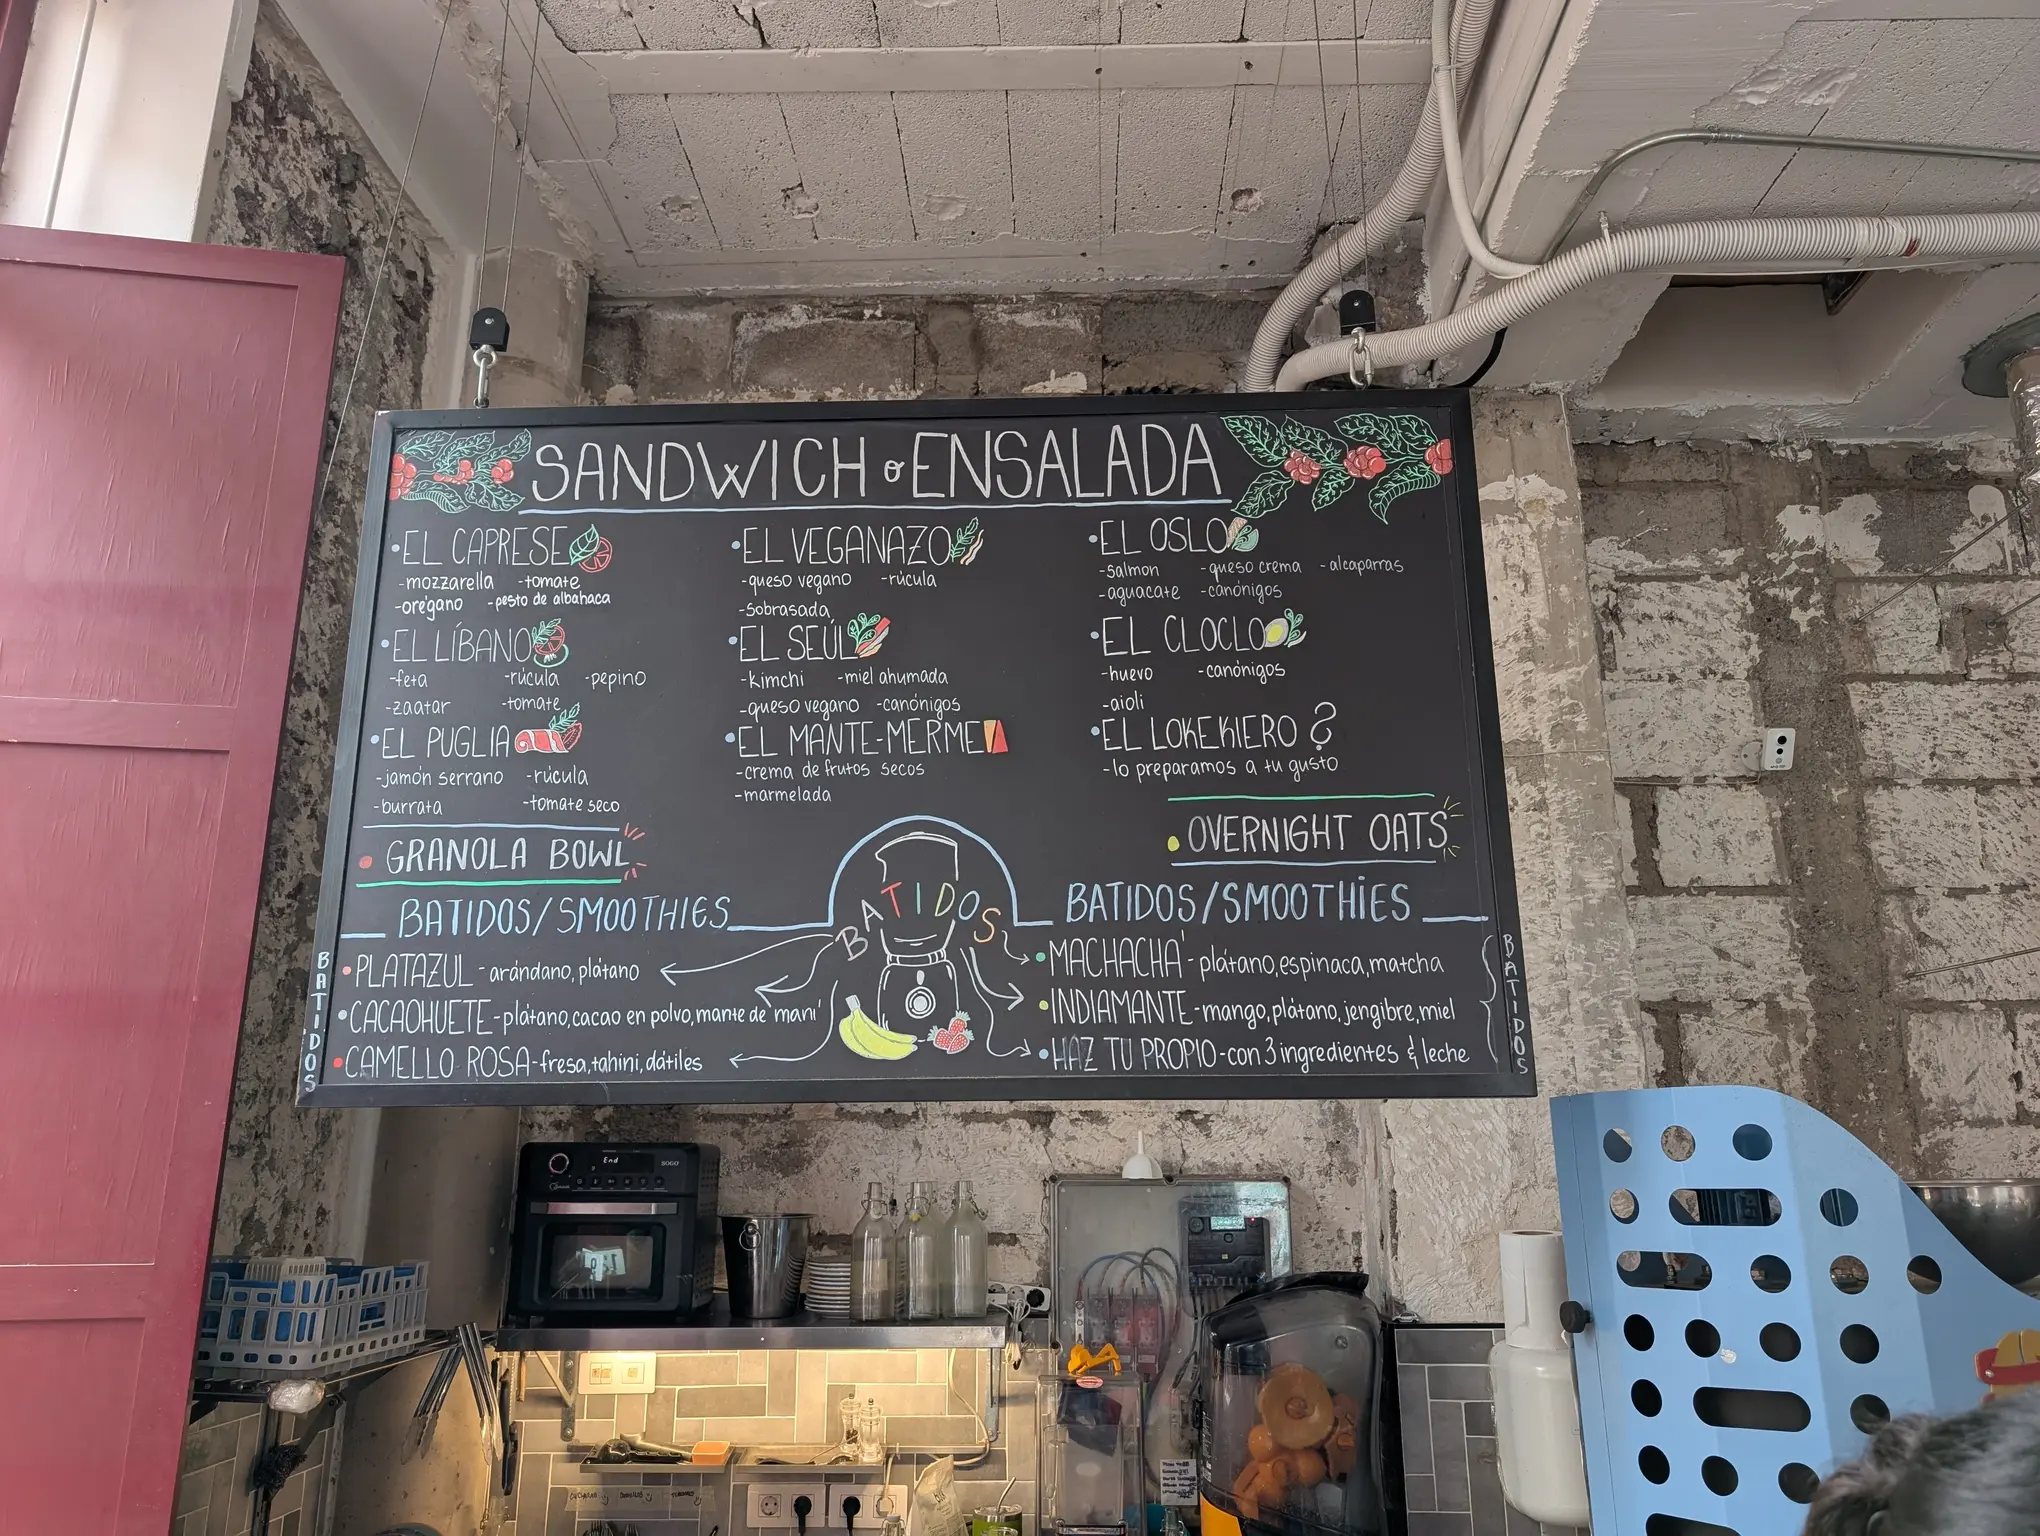 SANDWICH o ENSALADA
•EL CAPRESE
-mozzarella -tomate
-orégano -pesto de albahaca
•EL LÍBANO
-feta -rúcula -pepino
-zaatar -tomate
•EL PUGLIA
-jamón serrano -rúcula
-burrata -tomate seco
•EL VEGANAZO
-queso vegano -rúcula
-sobrasada
•EL SEÚL
-kimchi -miel ahumada
-queso vegano -canónigos
•EL MANTE-MERME
-crema de frutos secos
-marmelada
•EL OSLO
-salmon -queso crema -alcaparras
-aguacate -canónigos
•EL CLOCLO
-huevo -canónigos
-aioli
•EL LOKEKIERO ?
-lo preparamos a tu gusto
• GRANOLA BOWL
• OVERNIGHT OATS
BATIDOS/SMOOTHIES
BATIDOS
•PLATAZUL - arándano, plátano
•CACAOHUETE - plátano, cacao en polvo, mante de maní
•CAMELLO ROSA - fresa, tahini, dátiles
BATIDOS
BATIDOS/SMOOTHIES
•MACHACHÁ - plátano, espinaca, matcha
•INDIAMANTE - mango, plátano, jengibre, miel
•HAZ TU PROPIO - con 3 ingredientes & leche
BATIDOS
End
SOGO